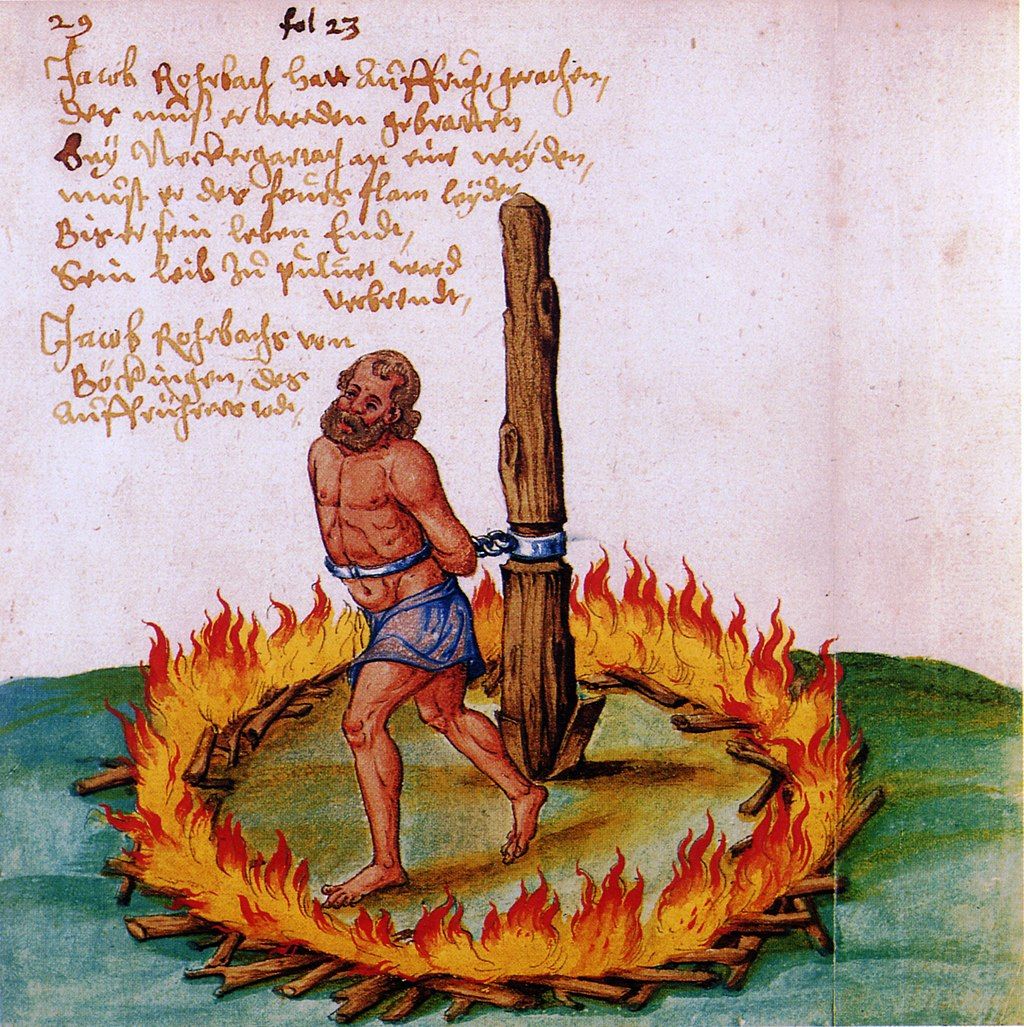 29
fol 23
Jacob Rohrbach hatt Auffruhr gerathen,
der muß er werden gebratten,
Bey Neckergartach an eine weyden,
must er des feurs flam leyden
Bis er sein leben Endt,
Sein leib zu puluer ward
verbrendt,
Jacob Rohrbachs von
Böckingen, des
Auffrührers todt,